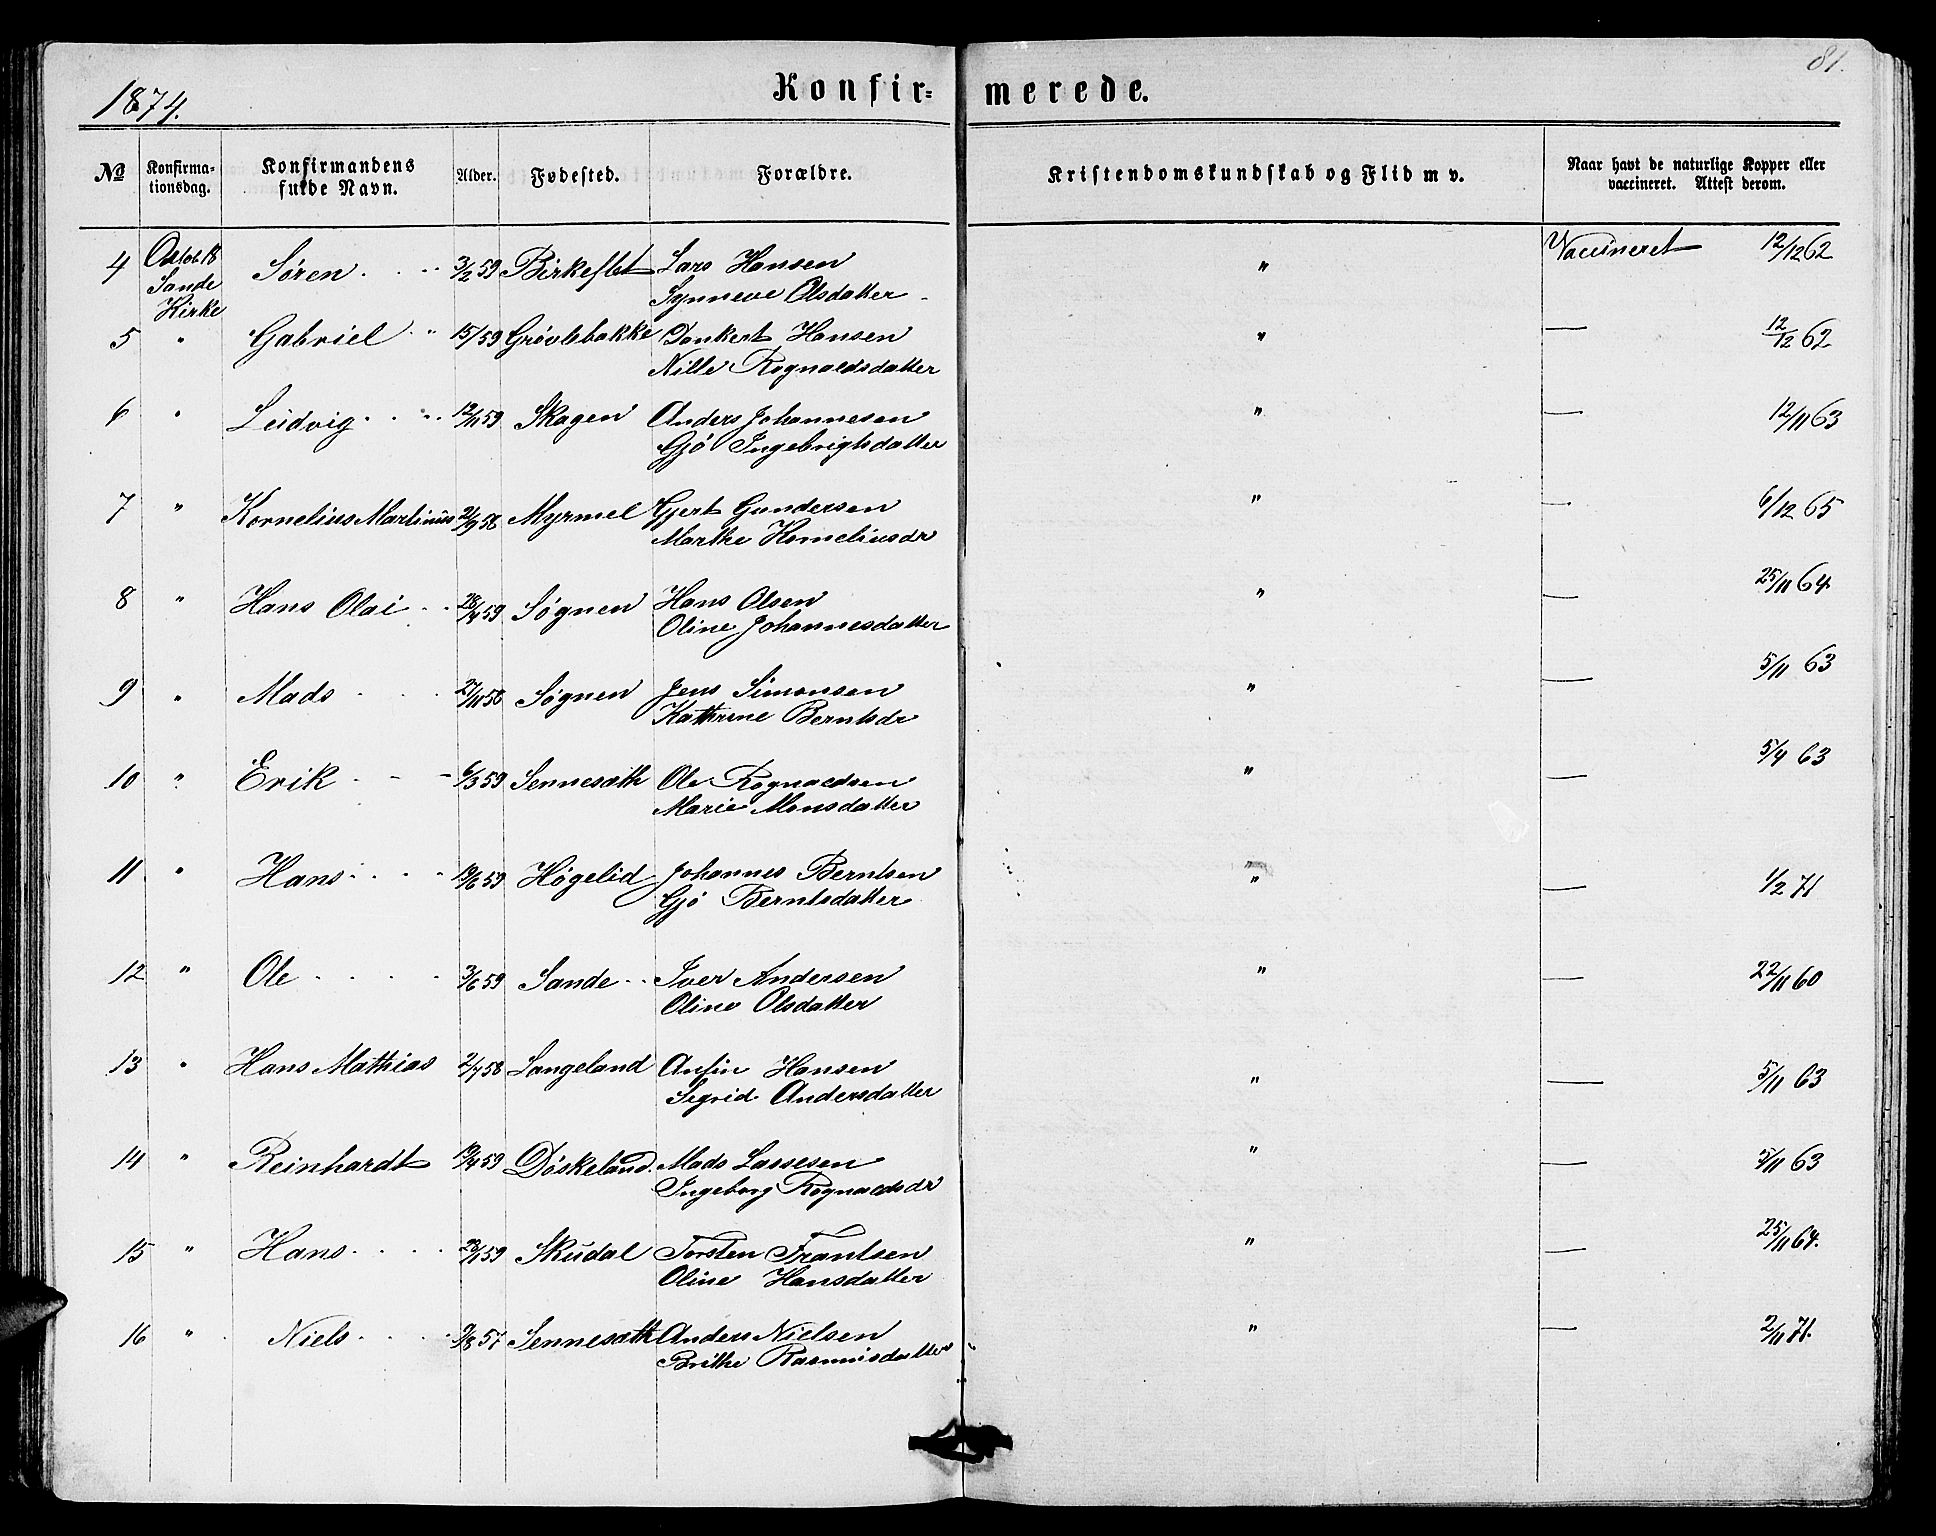 81.
1874.
Konfir= merede.
No Konfirma- tionsdag. Konfirmandens fulde Navn. Alder. Fødested. Forældre. Kristendomskundskab og Flid m v. Naar havt de naturlige Kopper eller vaccineret. Attest derom.
4 Octob. 18 Søren 3/2 59 Birkeflet Lars Hansen " Vaccineret 12/12 62
Sande Kirke Synneve Olsdatter
5 " Gabriel 15/ 59 Grøvlebakke Dankert Hansen " — 12/12 62
Nille Rognaldsdatter
6 " Ludvig 12/11 59 Skagen Anders Johannesen " — 12/11 63
Gjø Ingebrigtsdatter
7 " Kornelius Martinus 21/9 58 Myrmel Gjert Gundersen " — 6/12 65
Marthe Korneliusdr
8 " Hans Olai 28/4 59 Søgnen Hans Olsen " — 25/11 64.
Oline Johannesdatter
9 " Mads 27/11 58 Søgnen Jens Simonsen " — 5/11 63
Kathrine Berntsdr
10 " Erik 6/3 59 Sennesæth Ole Rognaldsen " — 5/4 63
Marie Monsdatter
11 " Hans 19/6 59 Høgelid Johannes Berntsen " — 1/2 71
Gjø Berntsdatter
12 " Ole 3/6 59 Sande Iver Andersen " — 22/11 60
Oline Olsdatter
13 " Hans Mathias 2/7 58 Langeland Anfin Hansen " — 5/11 63
Sigrid Andersdatter
14 " Reinhardt 19/4 59 Døskeland Mads Lassesen " — 5/11 63
Ingeborg Rognaldsdr
15 " Hans 23/1 59 Skudal Torsten Frantsen " — 25/11 64.
Oline Hansdatter
16 " Niels 9/8 57 Sennesæth Anders Nielsen " — 2/11 71.
Brithe Rasmusdatter